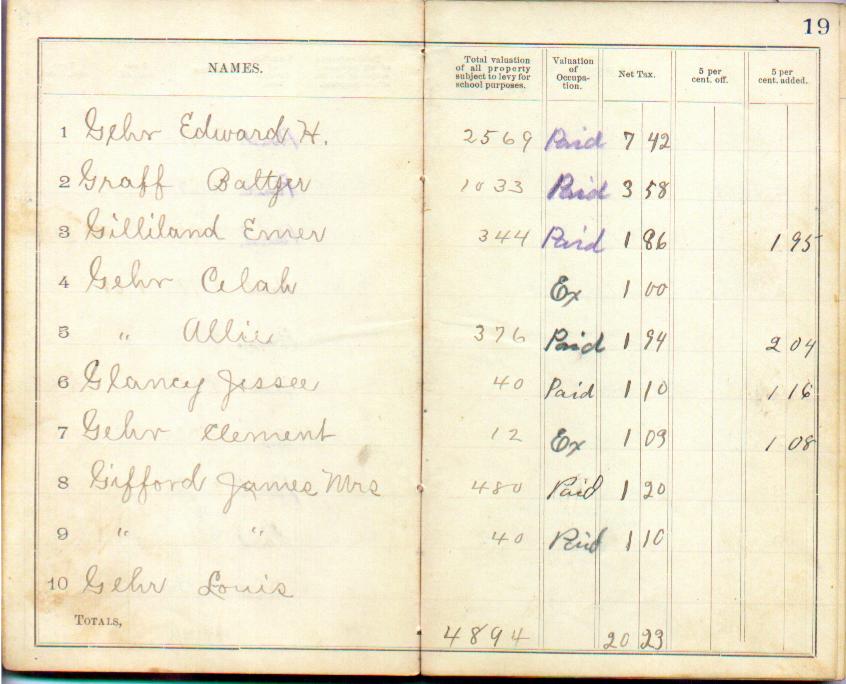 19
NAMES. Total valuation of all property subject to levy for school purposes. Valuation of Occupa-tion. Net Tax. 5 per cent. off. 5 per cent. added.
1 Gehr Edward H. 2569 Paid 7 42
2 Graff Baltzer 1033 Paid 3 58
3 Gilliland Emer 344 Paid 1 86 1 95
4 Gehr Celah Ex 1 00
5 " Allie 376 Paid 1 94 2 04
6 Glancy Jessee 40 Paid 1 10 1 16
7 Gehr Clement 12 Ex 1 03 1 08
8 Gifford James Mrs 480 Paid 1 20
9 " " 40 Paid 1 10
10 Gehr Louis
TOTALS, 4894 20 23